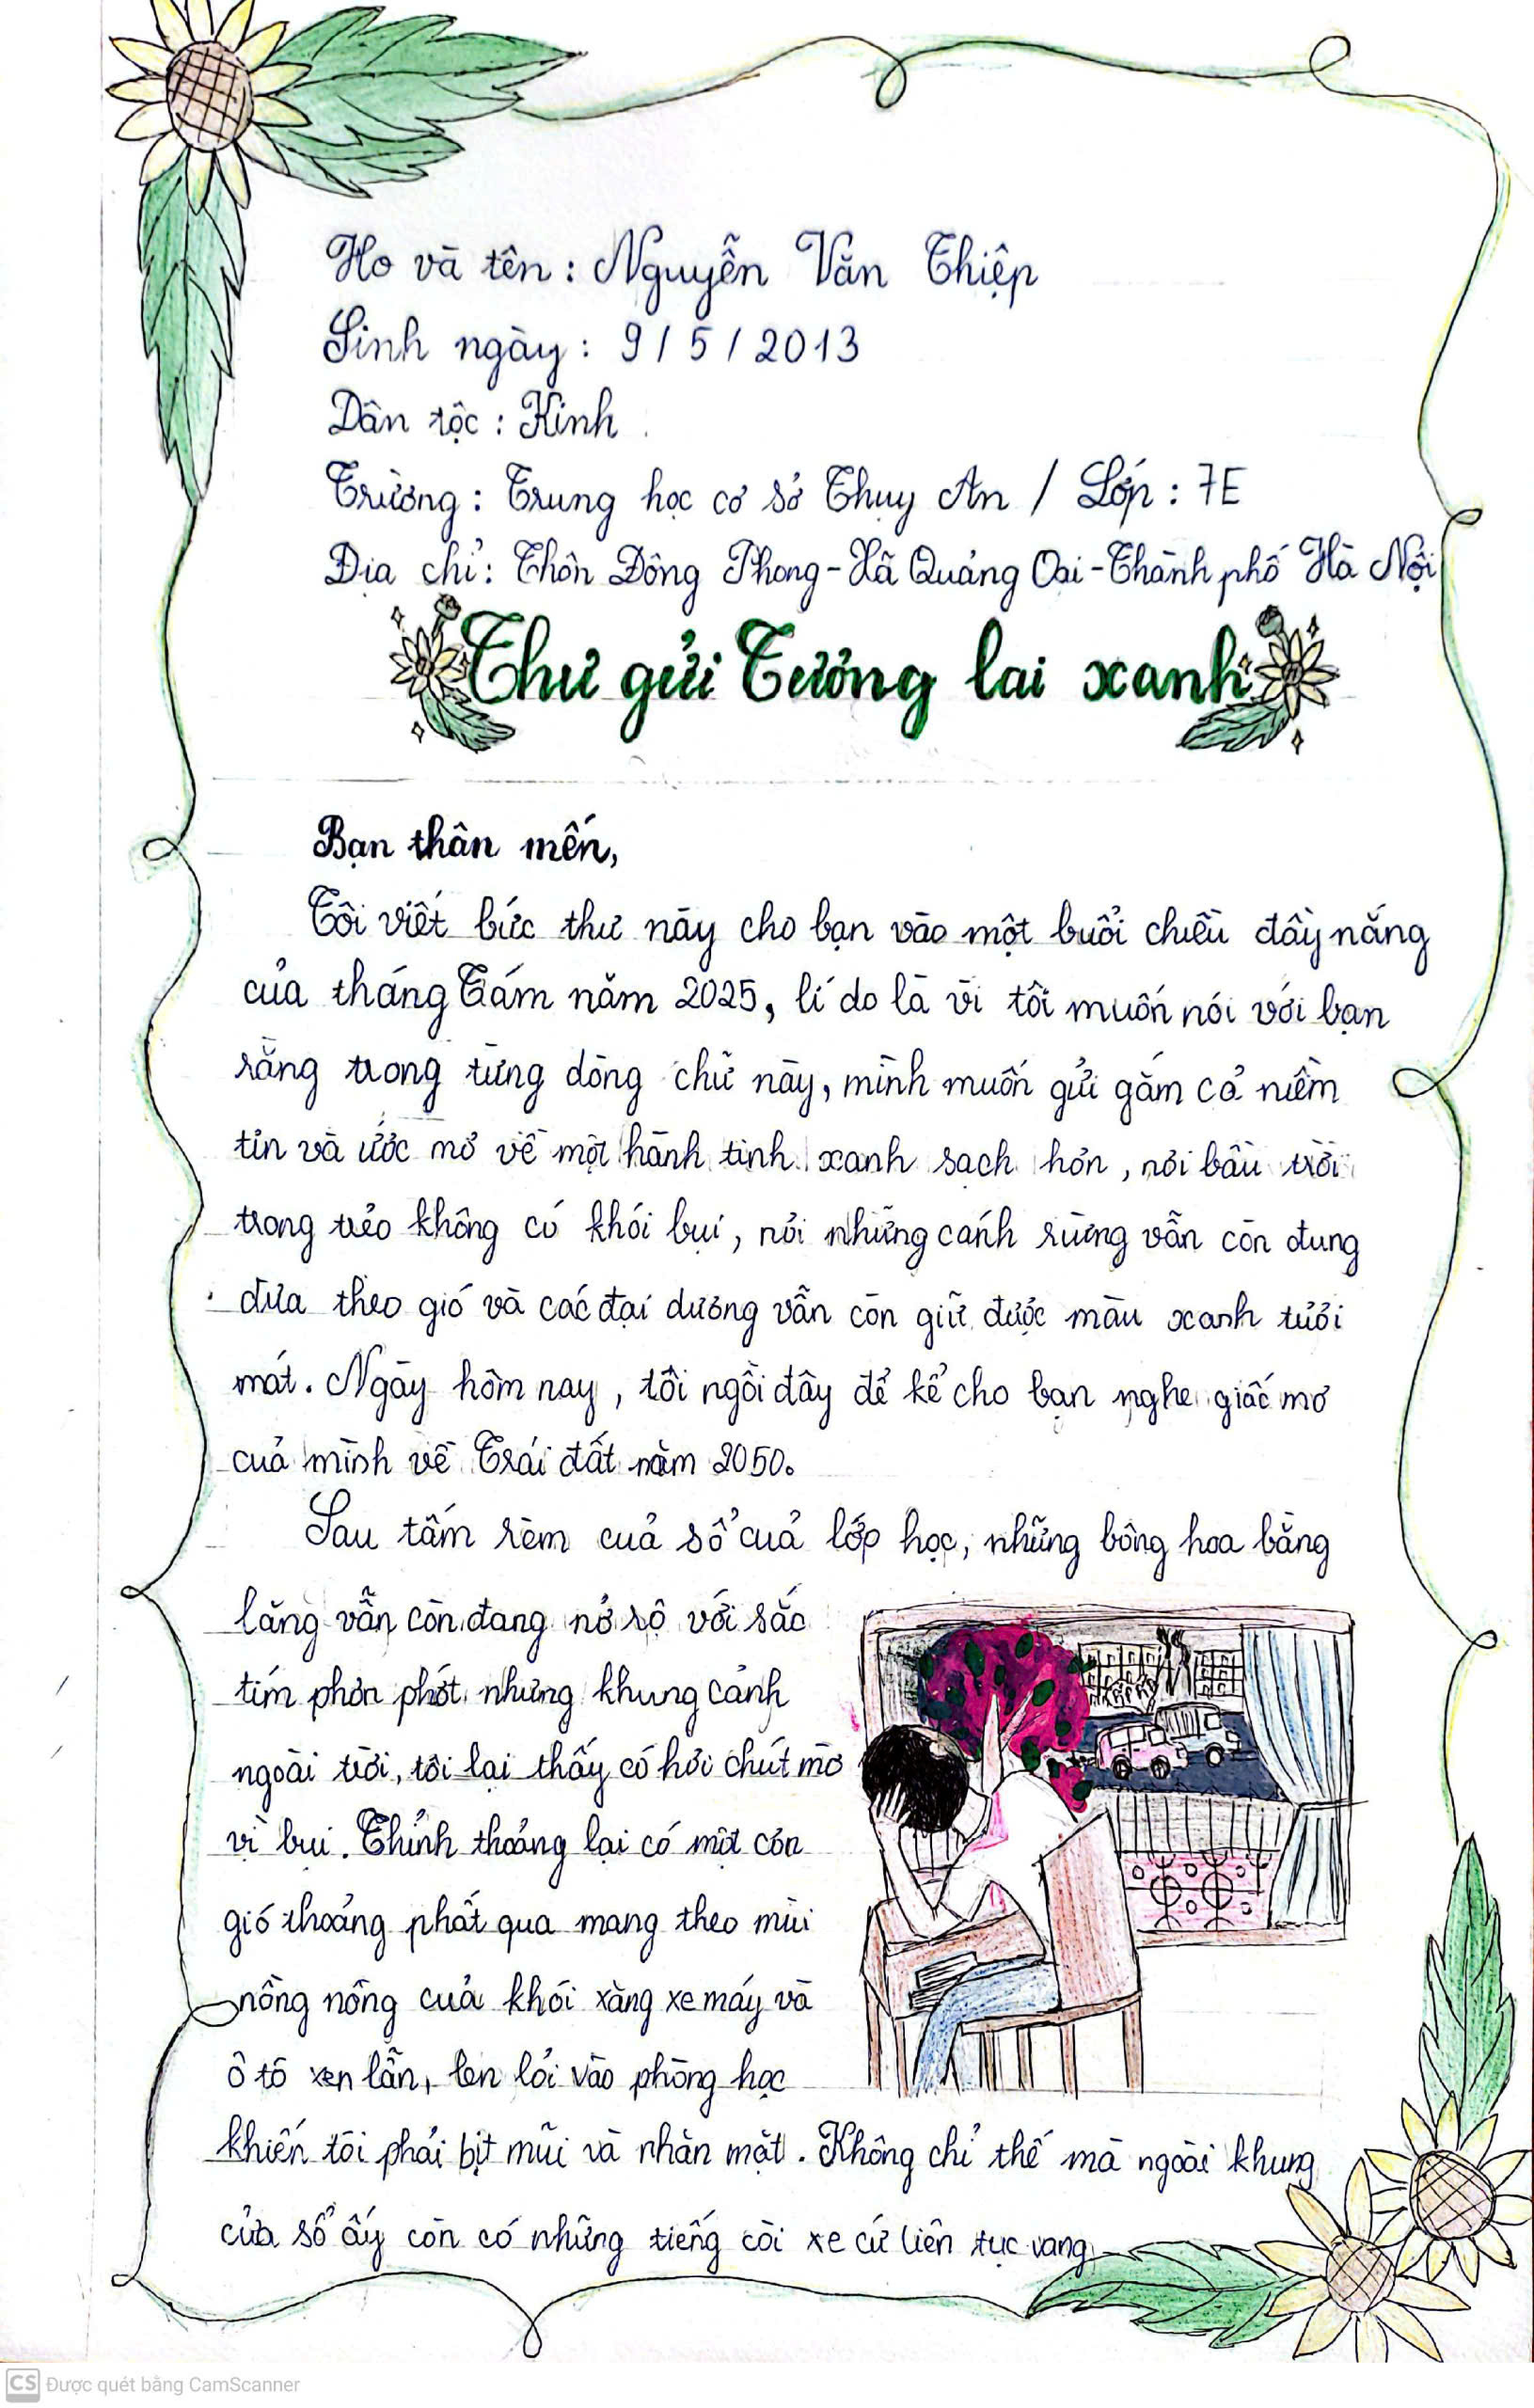 Họ và tên : Nguyễn Văn Thiệp
Sinh ngày : 9 / 5 / 2013
Dân tộc : Kinh
Trường : Trung học cơ sở Thụy An / Lớp : 7E
Địa chỉ : Thôn Đông Phong - Xã Quảng Oai - Thành phố Hà Nội
Thư gửi Tương lai xanh
Bạn thân mến,
Tôi viết bức thư này cho bạn vào một buổi chiều đầy nắng
của tháng Tám năm 2025, lí do là vì tôi muốn nói với bạn
rằng trong từng dòng chữ này, mình muốn gửi gắm cả niềm
tin và ước mơ về một hành tinh xanh sạch hơn, nơi bầu trời
trong trẻo không có khói bụi, nơi những cánh rừng vẫn còn đung
đưa theo gió và các đại dương vẫn còn giữ được màu xanh tươi
mát. Ngày hôm nay, tôi ngồi đây để kể cho bạn nghe giấc mơ
của mình về Trái đất năm 2050.
Sau tấm rèm cửa sổ của lớp học, những bông hoa bằng
lăng vẫn còn đang nở rộ với sắc
tím phơn phớt nhưng khung cảnh
ngoài trời, tôi lại thấy có hơi chút mờ
vì bụi. Thỉnh thoảng lại có một cơn
gió thoảng phất qua mang theo mùi
nồng nồng của khói xăng xe máy và
ô tô xen lẫn, len lỏi vào phòng học
khiến tôi phải bịt mũi và nhăn mặt. Không chỉ thế mà ngoài khung
cửa sổ ấy còn có những tiếng còi xe cứ liên tục vang
CS Được quét bằng CamScanner